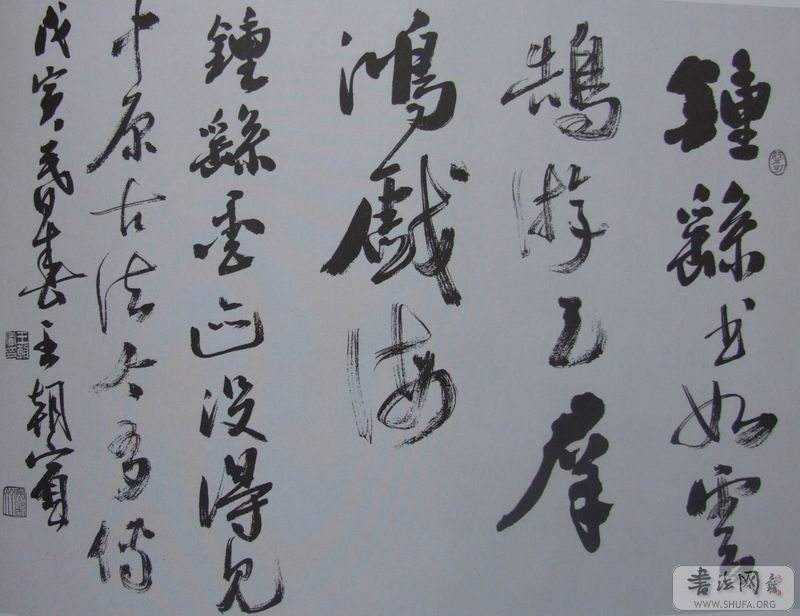 鍾繇書如雲
鵠游天群
鴻戲海
鍾繇墨迹没得見
中原古法今多傳
戊寅暮春王朝賓
書法网
WWW.SHUFA.ORG